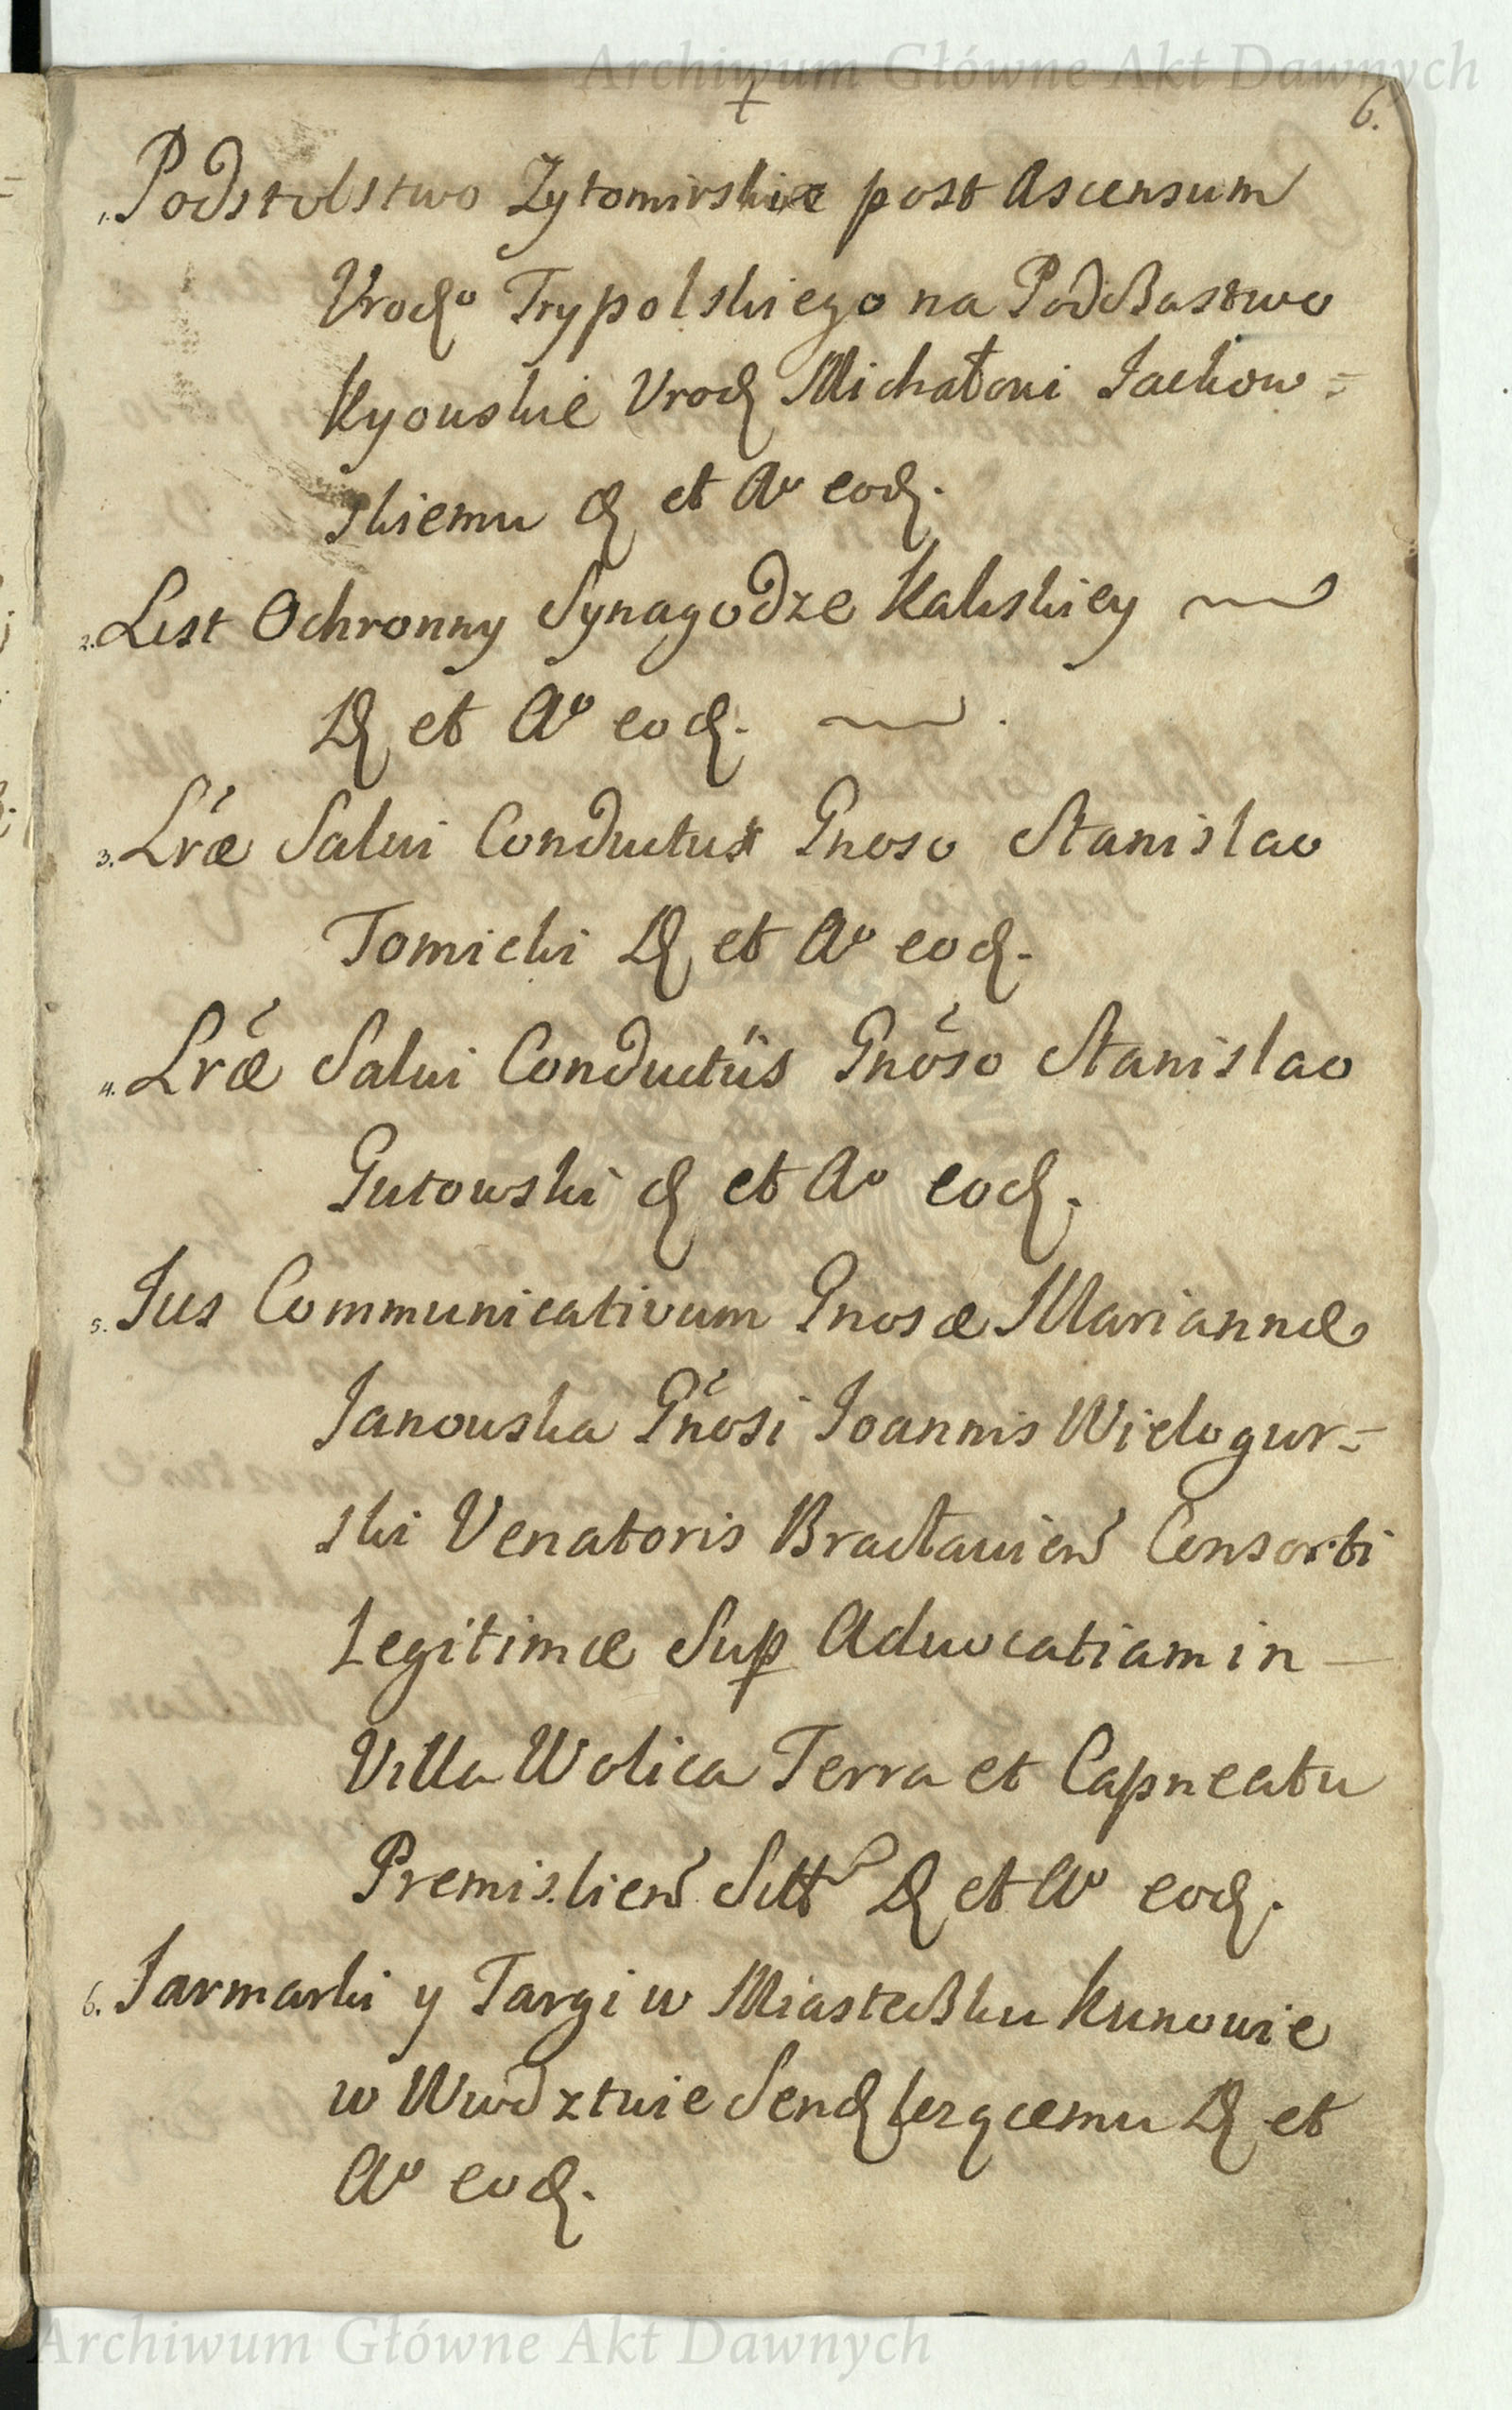 Archiwum Główne Akt Dawnych
+
6.
1. Podstolstwo Zytomirskie post Ascensum
Urodo Trypolskiego na Podczastwo
Kyouskie Urod Michałoui Jackow=
skiemu d et Ao eod.
2. List Ochronny Synagodze Kaliskiey
D et Ao eod.
3. Lræ Salui Conductus Gnoso Stanislao
Tomicki D et Ao eod.
4. Lræ Salui Conductûs Gnoso Stanislao
Gutowski d et Ao eod.
5. Jus Communicativum Gnosæ Mariannæ
Janouska Gnosi Joannis Wielogur=
ski Venatoris Bracłauien Consorti
Legitimæ Sup Aduocatiam in
Villa Wolica Terra et Capneatu
Premislien Sitt D et Ao eod.
6. Jarmarki y Targi w Miasteczku Kunowie
w Wwodztwie Send lezącemu D et
Ao eod.
Archiwum Główne Akt Dawnych